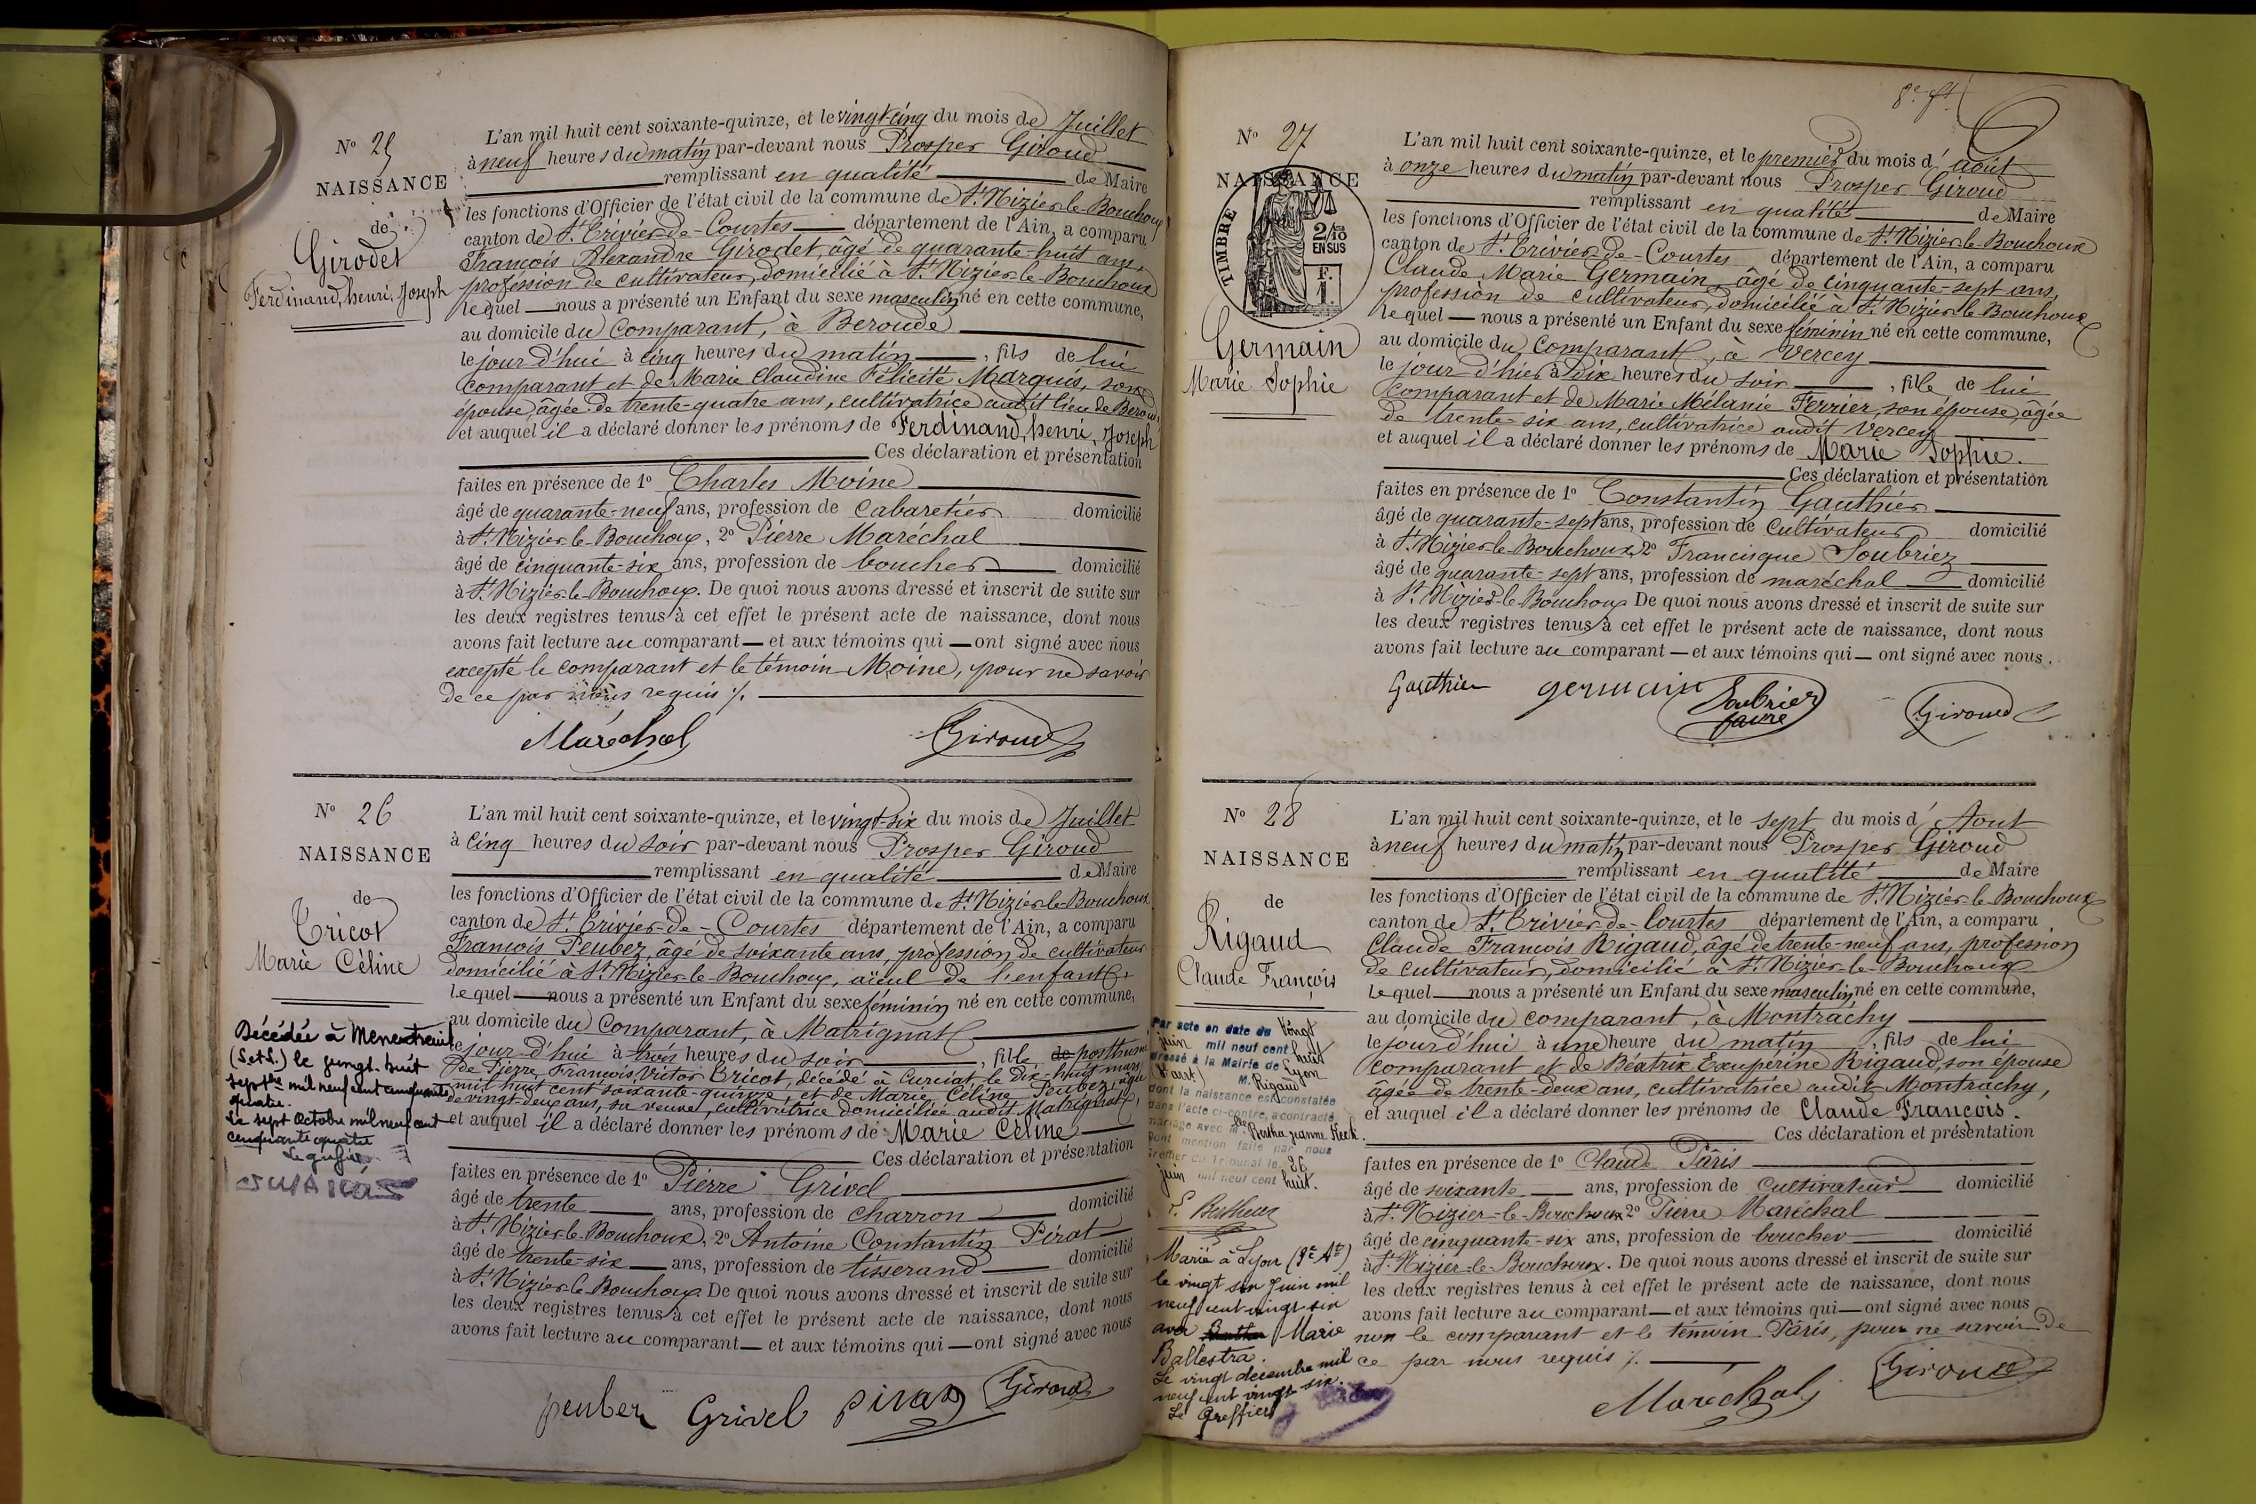 N° 25
NAISSANCE
de
Girodet
Ferdinand, henri, Joseph
L'an mil huit cent soixante-quinze, et le vingt-cinq du mois de Juillet
à neuf heures du matin par-devant nous Prosper Giroud
remplissant en qualité de Maire
les fonctions d'Officier de l'état civil de la commune de St. Nizier-le-Bouchoux
canton de St. Trivier-de-Courtes département de l'Ain, a comparu
François Alexandre Girodet, âgé de quarante-huit ans,
profession de cultivateur, domicilié à St. Nizier-le-Bouchoux
lequel nous a présenté un Enfant du sexe masculin né en cette commune,
au domicile du comparant, à Beroude
le jour d'hui à cinq heures du matin, fils de lui
comparant et de Marie Claudine Félicité Marquis, son
épouse, âgée de trente-quatre ans, cultivatrice audit lieu de Beroude,
et auquel il a déclaré donner les prénoms de Ferdinand, henri, Joseph
Ces déclaration et présentation
faites en présence de 1° Charles Moine
âgé de quarante-neuf ans, profession de cabaretier domicilié
à St. Nizier-le-Bouchoux, 2° Pierre Maréchal
âgé de cinquante-six ans, profession de boucher domicilié
à St. Nizier-le-Bouchoux. De quoi nous avons dressé et inscrit de suite sur
les deux registres tenus à cet effet le présent acte de naissance, dont nous
avons fait lecture au comparant et aux témoins qui ont signé avec nous
excepté le comparant et le témoin Moine, pour ne savoir
de ce par nous requis ./.
Maréchal Giroud
N° 26
NAISSANCE
de
Tricot
Marie Céline
Décédée à Menetreuil
(S.et L.) le vingt-huit
septbre mil neuf cent cinquante
quatre.
Le sept Octobre mil neuf cent
cinquante quatre
Le greffier
L'an mil huit cent soixante-quinze, et le vingt-six du mois de Juillet
à cinq heures du soir par-devant nous Prosper Giroud
remplissant en qualité de Maire
les fonctions d'Officier de l'état civil de la commune de St. Nizier-le-Bouchoux
canton de St. Trivier-de-Courtes département de l'Ain, a comparu
François Peubez, âgé de soixante ans, profession de cultivateur
domicilié à St. Nizier-le-Bouchoux, aïeul de l'enfant
lequel nous a présenté un Enfant du sexe féminin né en cette commune,
au domicile du comparant, à Matrignat
le jour-d'hui à trois heures du soir, fille de posthume
de Pierre François Victor Tricot, décédé à Curciat le Dix-huit mars
mil huit cent soixante-quinze, et de Marie Céline Peubez, âgée
de vingt-deux ans, sa veuve, cultivatrice domiciliée audit Matrignat,
et auquel il a déclaré donner les prénoms de Marie Céline
Ces déclaration et présentation
faites en présence de 1° Pierre Grivel
âgé de trente ans, profession de charron domicilié
à St. Nizier-le-Bouchoux, 2° Antoine Constantin Pirat
âgé de trente-six ans, profession de tisserand domicilié
à St. Nizier-le-Bouchoux. De quoi nous avons dressé et inscrit de suite sur
les deux registres tenus à cet effet le présent acte de naissance, dont nous
avons fait lecture au comparant et aux témoins qui ont signé avec nous
peubez Grivel Pirat Giroud
8e ft.
N° 27
NAISSANCE
TIMBRE
2/10
EN SUS
F.
1.
Germain
Marie Sophie
L'an mil huit cent soixante-quinze, et le premier du mois d'août
à onze heures du matin par-devant nous Prosper Giroud
remplissant en qualité de Maire
les fonctions d'Officier de l'état civil de la commune de St. Nizier-le-Bouchoux
canton de St. Trivier-de-Courtes département de l'Ain, a comparu
Claude Marie Germain, âgé de cinquante-sept ans,
profession de cultivateur, domicilié à St. Nizier-le-Bouchoux
lequel nous a présenté un Enfant du sexe féminin né en cette commune,
au domicile du comparant, à Vercey
le jour d'hier à dix heures du soir, fille de lui
comparant et de Marie Mélanie Ferrier, son épouse, âgée
de trente-six ans, cultivatrice audit Vercey
et auquel il a déclaré donner les prénoms de Marie Sophie.
Ces déclaration et présentation
faites en présence de 1° Constantin Gauthier
âgé de quarante-sept ans, profession de cultivateur domicilié
à St. Nizier-le-Bouchoux, 2° Francisque Soubriez
âgé de quarante-sept ans, profession de maréchal domicilié
à St. Nizier-le-Bouchoux De quoi nous avons dressé et inscrit de suite sur
les deux registres tenus à cet effet le présent acte de naissance, dont nous
avons fait lecture au comparant et aux témoins qui ont signé avec nous.
Gauthier germain Soubrier Giroud
faure
N° 28
NAISSANCE
de
Rigaud
Claude François
Par acte en date du Vingt
juin mil neuf cent huit
dressé à la Mairie de Lyon
M. Rigaud
dont la naissance est constatée
dans l'acte ci-contre, a contracté
mariage avec Mlle Bertha Jeanne
Dont mention faite par nous
Greffier du Tribunal le 26
juin mil neuf cent huit.
Marié à Lyon (3e At)
le vingt six Juin mil
neuf cent vingt six
avec Marie
Ballestra.
Le vingt décembre mil
neuf cent vingt six.
Le Greffier
L'an mil huit cent soixante-quinze, et le sept du mois d'Aout
à neuf heures du matin par-devant nous Prosper Giroud
remplissant en qualité de Maire
les fonctions d'Officier de l'état civil de la commune de St. Nizier-le-Bouchoux
canton de St. Trivier-de-Courtes département de l'Ain, a comparu
Claude François Rigaud, âgé de trente-neuf ans, profession
de cultivateur, domicilié à St. Nizier-le-Bouchoux
lequel nous a présenté un Enfant du sexe masculin né en cette commune,
au domicile du comparant, à Montrachy
le jour d'hui à une heure du matin, fils de lui
comparant et de Béatrix Exupérine Rigaud, son épouse
âgée de trente-deux ans, cultivatrice audit Montrachy,
et auquel il a déclaré donner les prénoms de Claude François.
Ces déclaration et présentation
faites en présence de 1° Claude Pâris
âgé de soixante ans, profession de cultivateur domicilié
à St. Nizier-le-Bouchoux 2° Pierre Maréchal
âgé de cinquante-six ans, profession de boucher domicilié
à St. Nizier-le-Bouchoux. De quoi nous avons dressé et inscrit de suite sur
les deux registres tenus à cet effet le présent acte de naissance, dont nous
avons fait lecture au comparant et aux témoins qui ont signé avec nous
non le comparant et le témoin Pâris, pour ne savoir de
ce par nous requis ./.
Maréchal Giroud